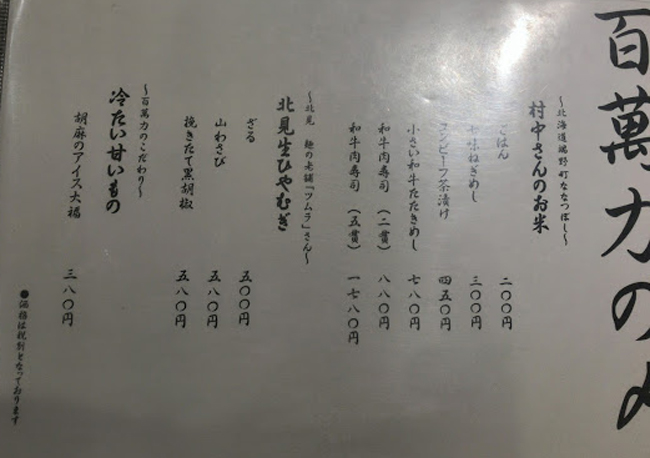 百萬力の〆
～北海道端野町ななつぼし～
村中さんのお米
ごはん 二〇〇円
七味ねぎめし 三〇〇円
コンビーフ茶漬け 四五〇円
小さい和牛たたきめし 七八〇円
和牛肉寿司 (二貫) 八八〇円
和牛肉寿司 (五貫) 一七八〇円
～北見 麺の老舗『ツムラ』さん～
北見生ひやむぎ
ざる 五〇〇円
山わさび 五八〇円
挽きたて黒胡椒 五八〇円
～百萬力のこだわり～
冷たい甘いもの
胡麻のアイス大福 三八〇円
●価格は税別となっております